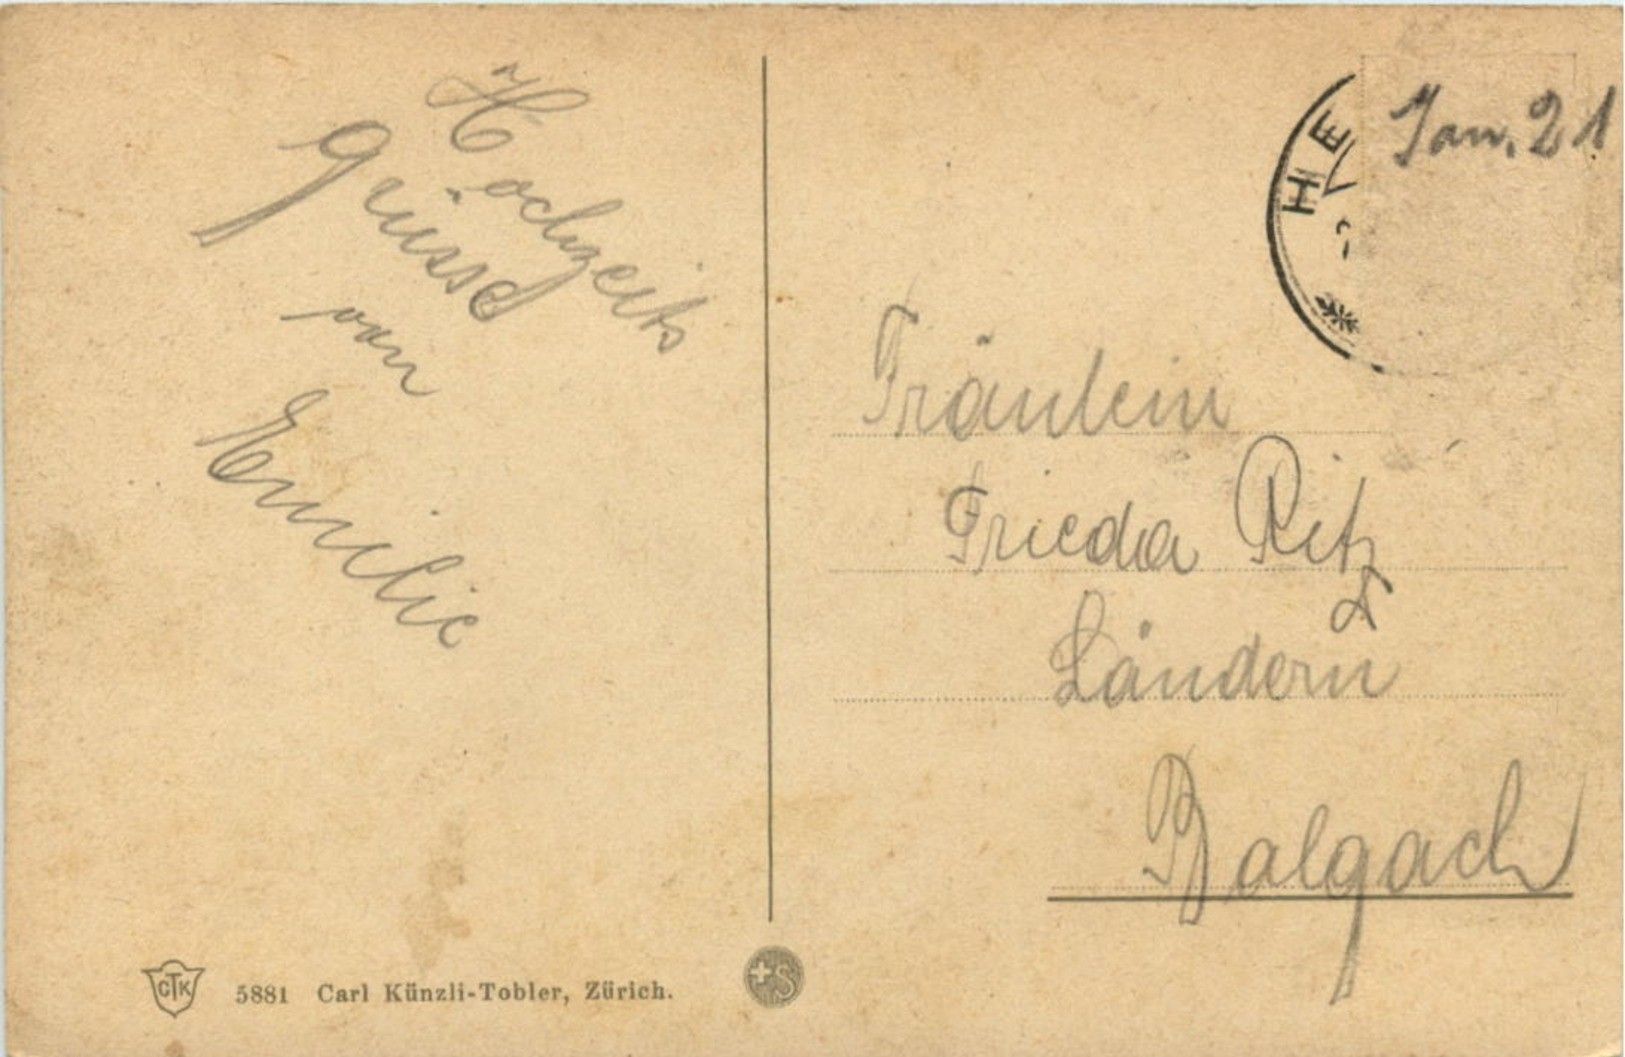 Hochzeits
Grüsse
von
Emilie
HE
Jan. 21
Fräulein
Frieda Ritz
Ländern
Balgach
CTK
5881 Carl Künzli-Tobler, Zürich.
+S